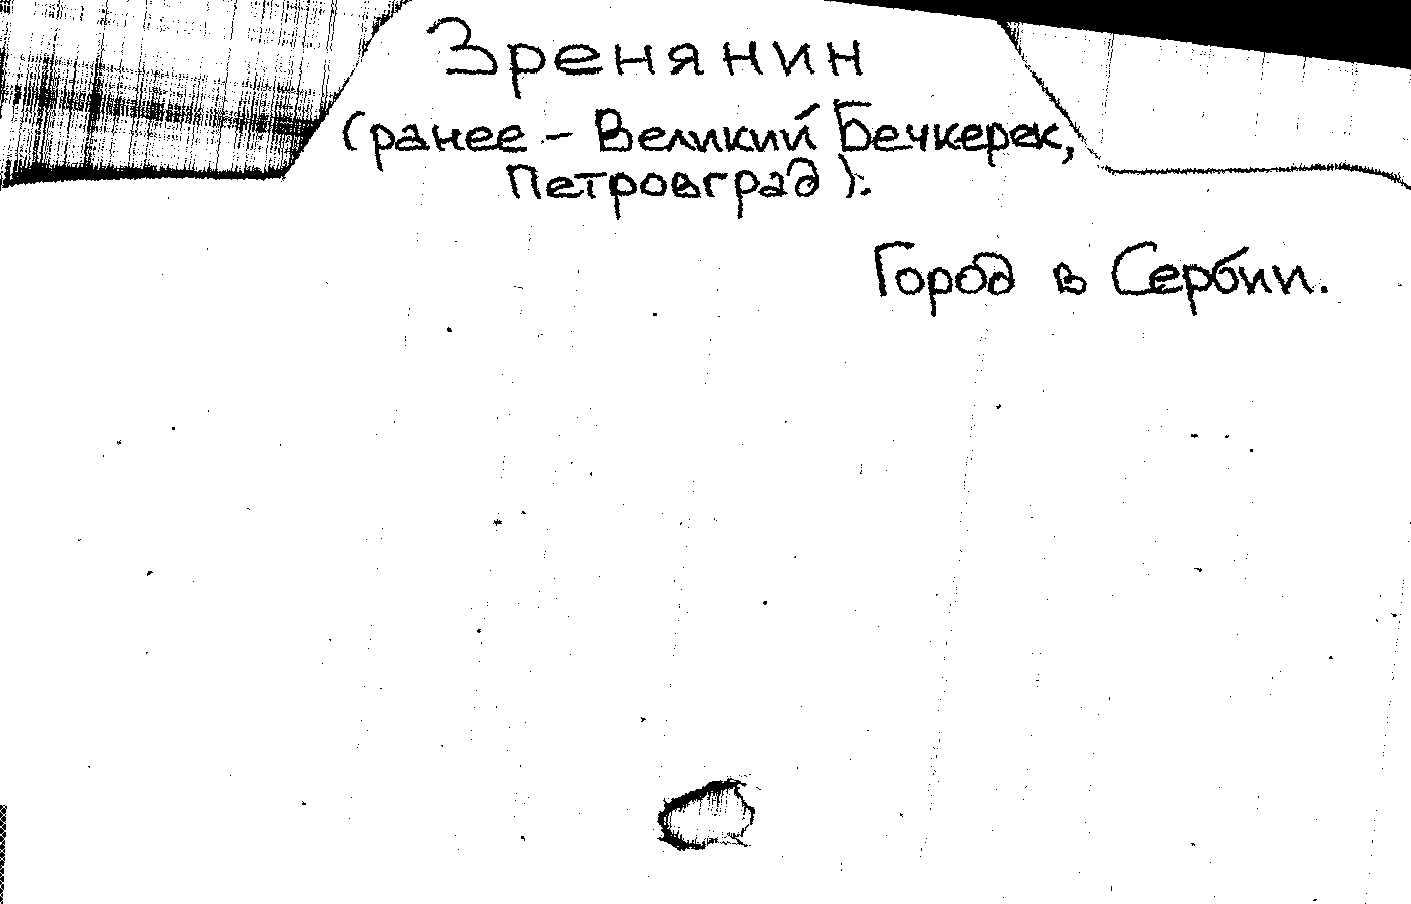 Зренянин
(ранее - Великий Бечкерек,
Петровград).
Город в Сербии.